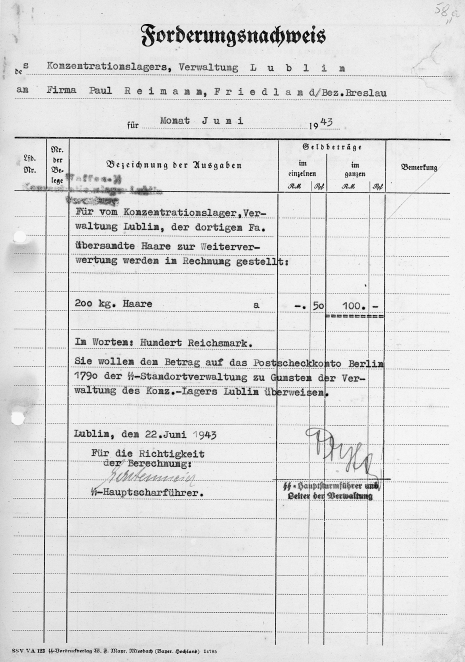 58a
Forderungsnachweis
des Konzentrationslagers, Verwaltung L u b l i n
an Firma Paul R e i m a n n, F r i e d l a n d/Bez.Breslau
für Monat J u n i 1943
Lfd. Nr.
Nr. der Belege
Bezeichnung der Ausgaben
Geldbeträge
im einzelnen
im ganzen
RM Rpf RM Rpf
Bemerkung
Waffen-SS
Konzentrationslager Lublin
Für vom Konzentrationslager,Ver-
waltung Lublin, der dortigen Fa.
übersandte Haare zur Weiterver-
wertung werden in Rechnung gestellt:
200 kg. Haare a -. 50 100. -
In Worten: Hundert Reichsmark.
Sie wollen den Betrag auf das Postscheckkonto Berlin
1790 der SS-Standortverwaltung zu Gunsten der Ver-
waltung des Konz.-Lagers Lublin überweisen.
Lublin, den 22.Juni 1943
Für die Richtigkeit
der Berechnung:
SS-Hauptscharführer.
SS-Hauptsturmführer und
Leiter der Verwaltung
SSV VA 123 SS-Vordruckverlag W. F. Mayr, Miesbach (Bayer. Hochland)